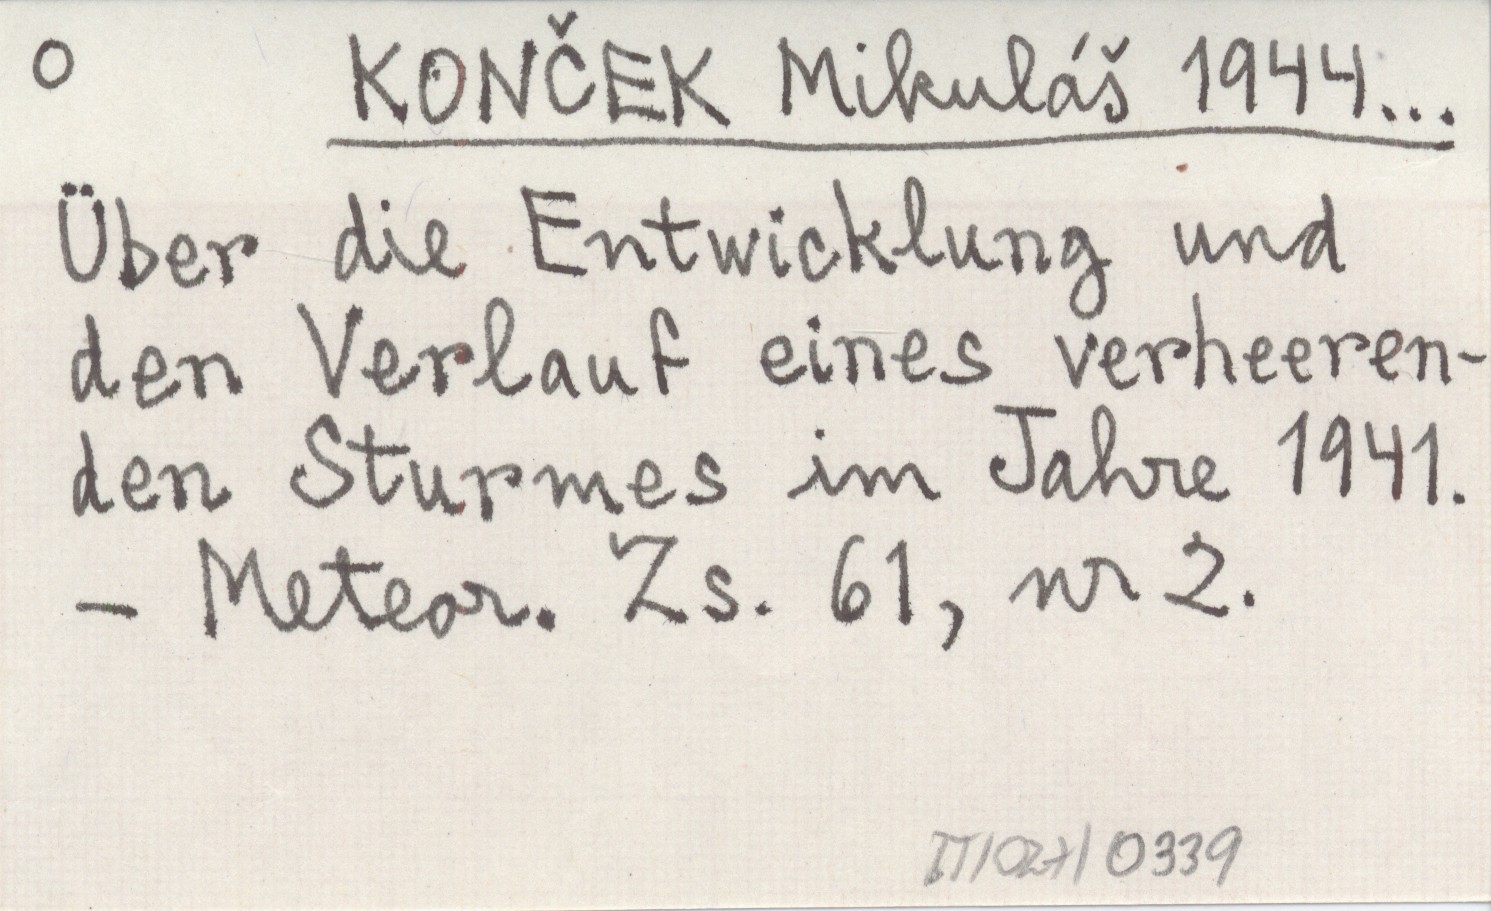 O KONČEK Mikuláš 1944...
Über die Entwicklung und
den Verlauf eines verheeren-
den Sturmes im Jahre 1941.
- Meteor. Zs. 61, nr 2.
IT/027/0339